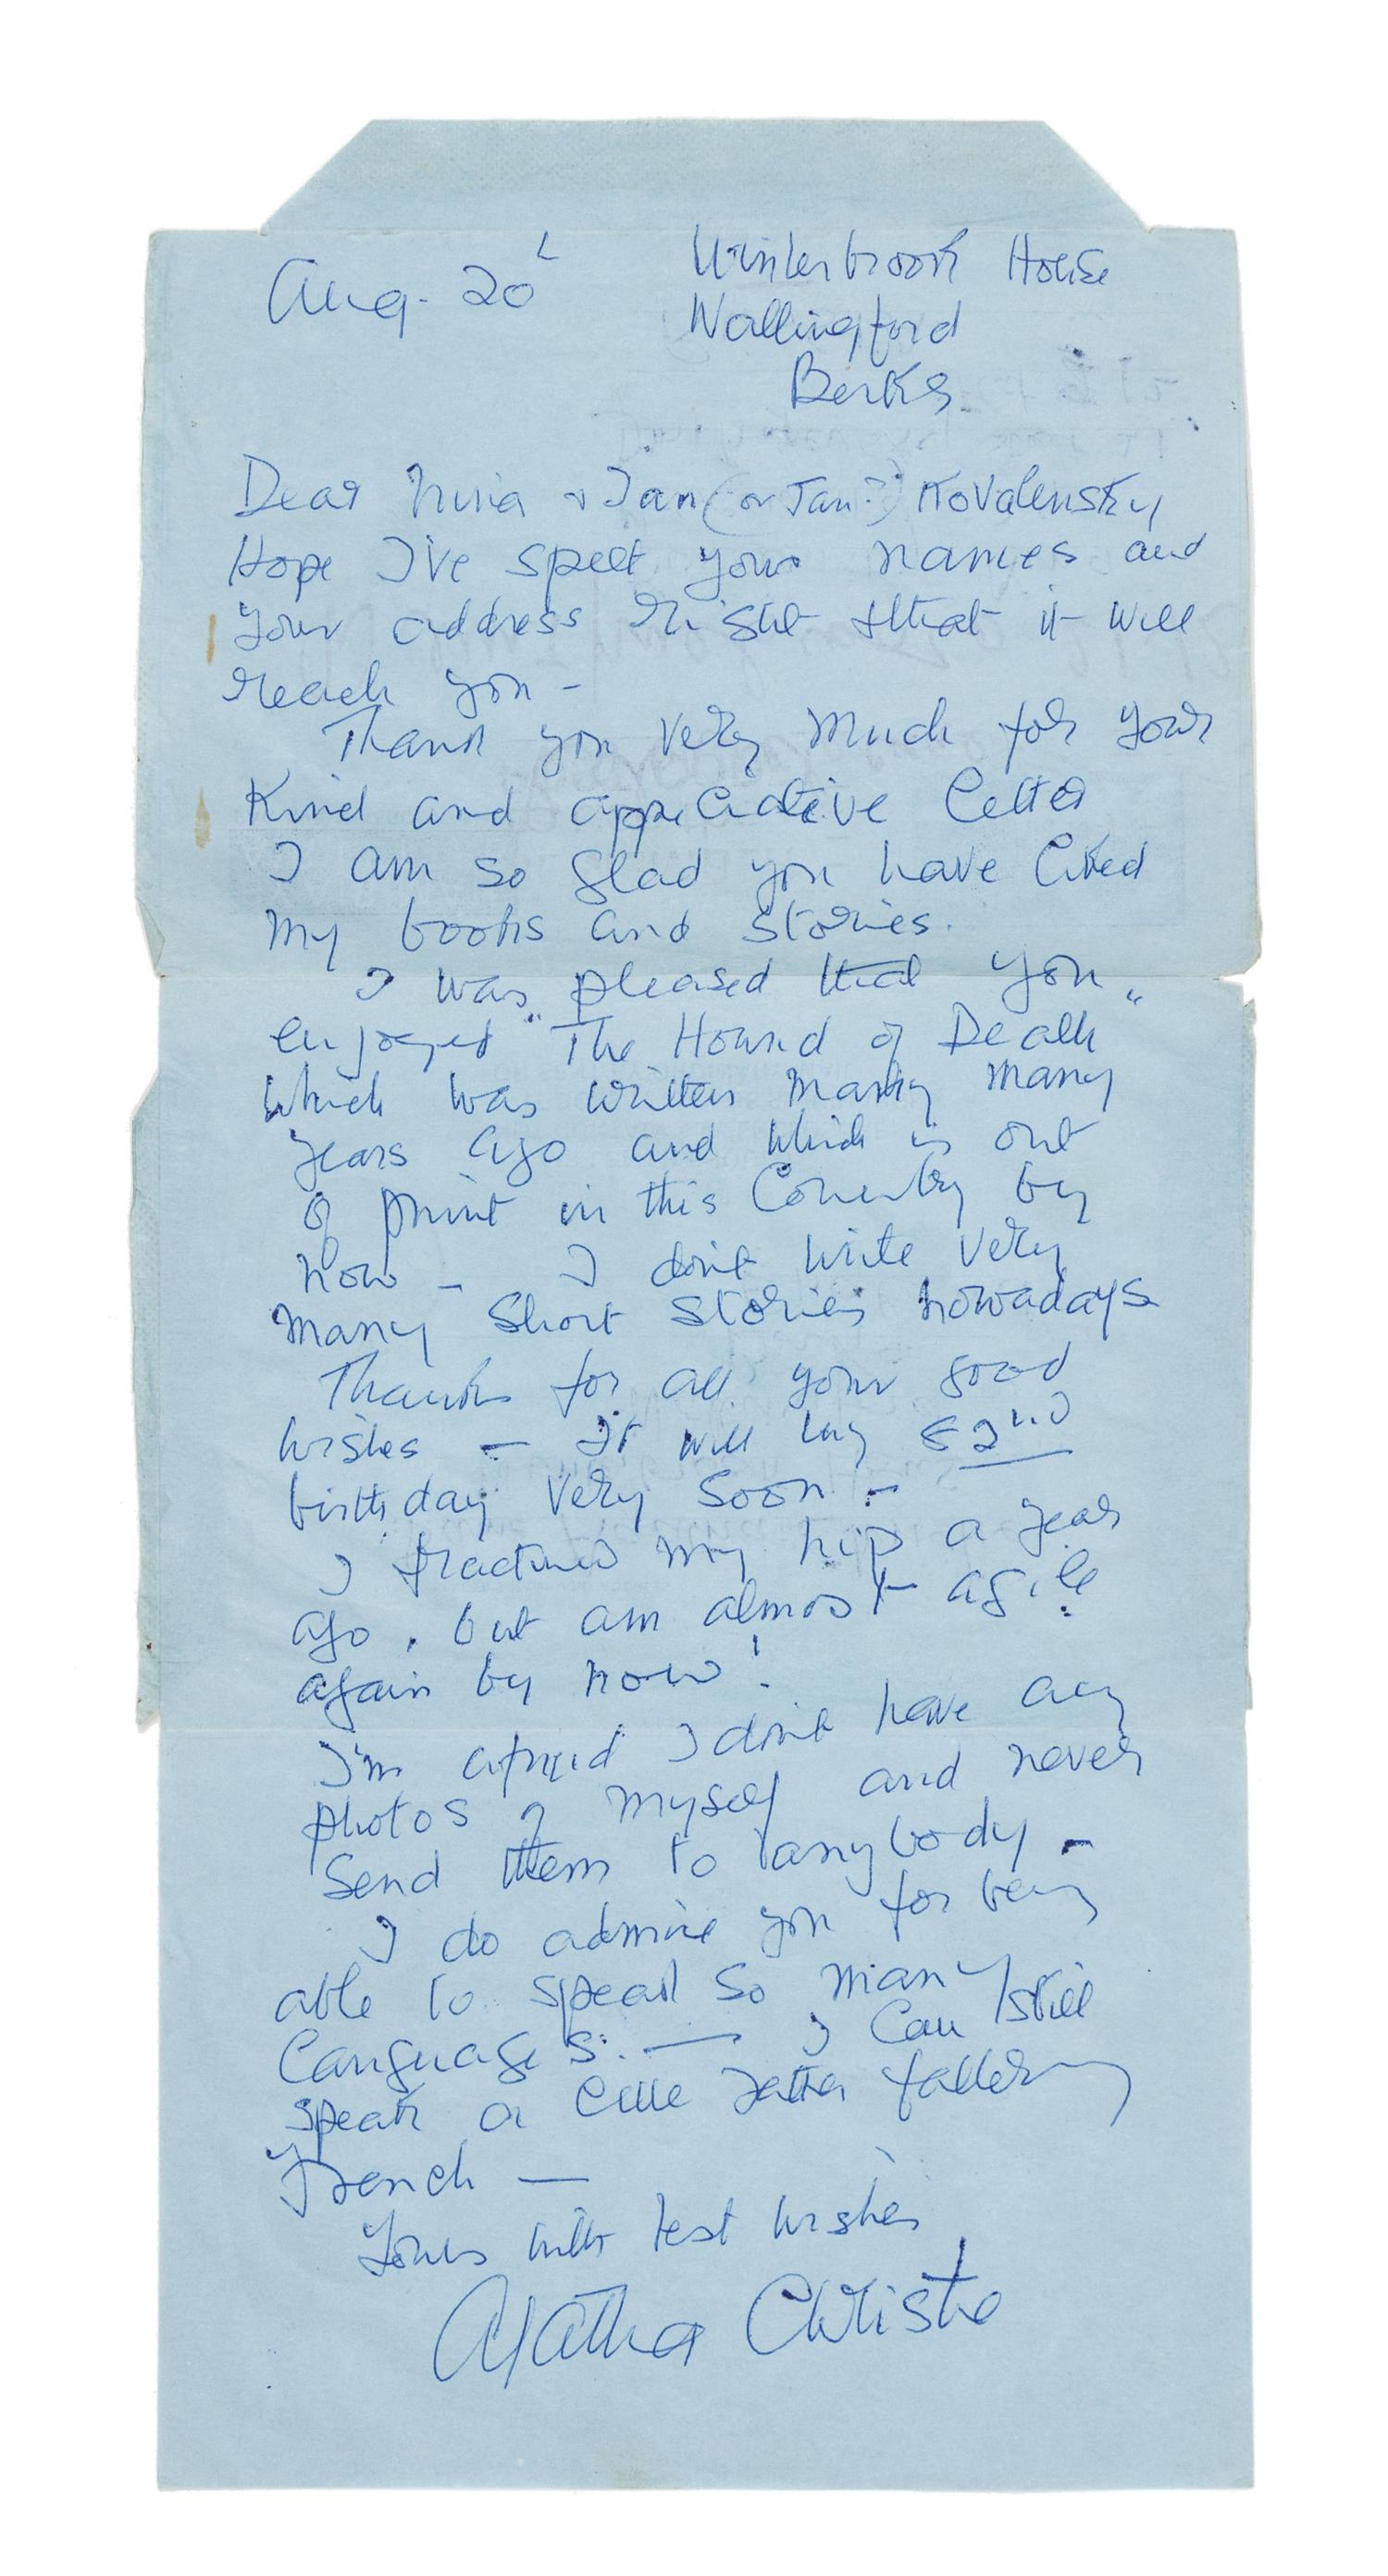 Aug. 20
Winterbrook House
Wallingford
Berks.
Dear Nina & Ian (or Jan?) Kovalensky
Hope I've spelt your names and
your address right & that it will
reach you -
Thank you very much for your
kind and appreciative letter
I am so glad you have liked
my books and stories.
I was pleased that you
enjoyed "The Hound of Death"
which was written many many
years ago and which is out
of print in this Country by
now - I don't write very
many short stories nowadays
Thanks for all your good
wishes - It will my 82nd
birthday very soon -
I fractured my hip a year
ago, but am almost agile
again by now!
I'm afraid I don't have any
photos of myself and never
send them to anybody -
I do admire you for being
able to speak so many
languages. — I can still
speak a little rather faltering
French —
Yours with best wishes
Agatha Christie